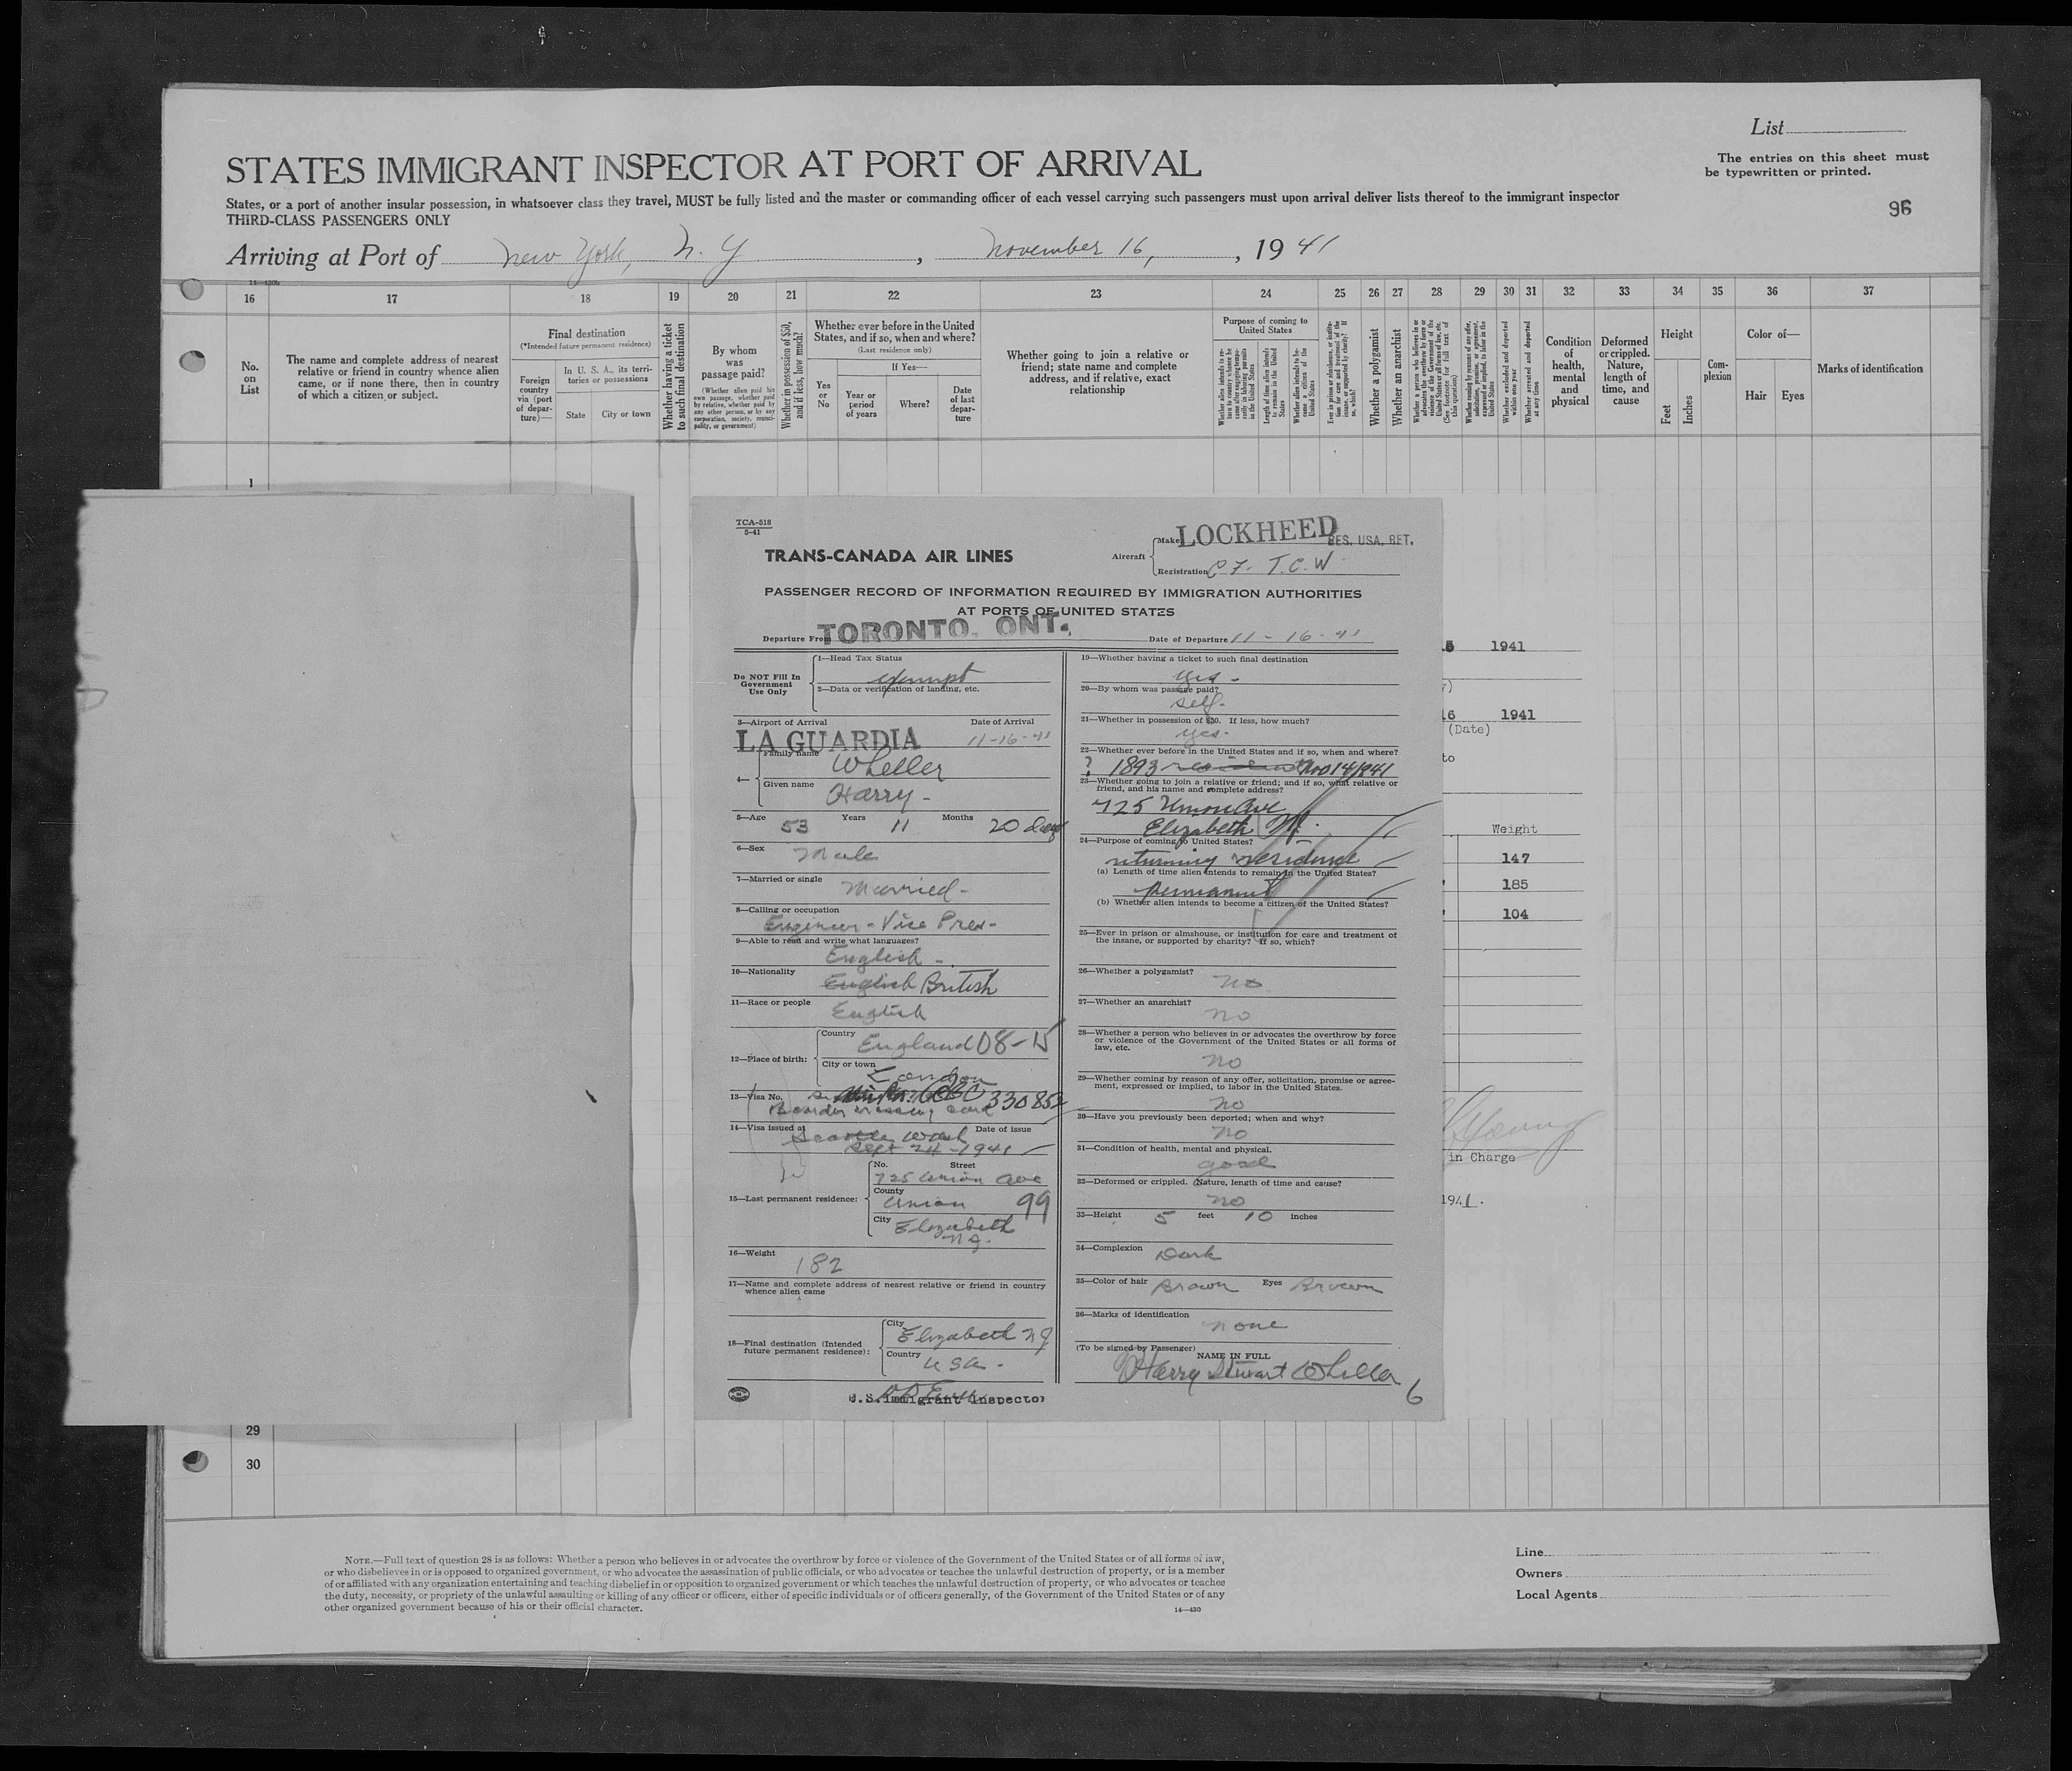 List
STATES IMMIGRANT INSPECTOR AT PORT OF ARRIVAL
The entries on this sheet must
be typewritten or printed.
States, or a port of another insular possession, in whatsoever class they travel, MUST be fully listed and the master or commanding officer of each vessel carrying such passengers must upon arrival deliver lists thereof to the immigrant inspector
THIRD-CLASS PASSENGERS ONLY
96
Arriving at Port of New York, N. Y , November 16, , 19 41
16 17 18 19 20 21 22 23 24 25 26 27 28 29 30 31 32 33 34 35 36 37
No.
on
List
The name and complete address of nearest
relative or friend in country whence alien
came, or if none there, then in country
of which a citizen or subject.
Final destination
(*Intended future permanent residence)
Foreign
country
via (port
of depar-
ture)—
In U. S. A., its terri-
tories or possessions
State
City or town
Whether having a ticket
to such final destination
By whom
was
passage paid?
(Whether alien paid his
own passage, whether paid
by relative, whether paid by
any other person, or by any
corporation, society, munici-
pality, or government)
Whether in possession of $50,
and if less, how much?
Whether ever before in the United
States, and if so, when and where?
(Last residence only)
Yes
or
No
If Yes—
Year or
period
of years
Where?
Date
of last
depar-
ture
Whether going to join a relative or
friend; state name and complete
address, and if relative, exact
relationship
Purpose of coming to
United States
Whether a polygamist
Whether an anarchist
Condition
of
health,
mental
and
physical
Deformed
or crippled.
Nature,
length of
time, and
cause
Height
Feet
Inches
Com-
plexion
Color of—
Hair
Eyes
Marks of identification
1
TCA-518
5-41
TRANS-CANADA AIR LINES
Aircraft
Make LOCKHEED
RES. USA. RET.
Registration CF. T.C.W
PASSENGER RECORD OF INFORMATION REQUIRED BY IMMIGRATION AUTHORITIES
AT PORTS OF UNITED STATES
Departure From TORONTO, ONT. Date of Departure 11-16-41
Do NOT Fill In
Government
Use Only
1—Head Tax Status
exempt
2—Data or verification of landing, etc.
3—Airport of Arrival Date of Arrival
LA GUARDIA 11-16-41
4—
Family name
Wheller
Given name
Harry -
5—Age 53 Years 11 Months 20 days
6—Sex Male
7—Married or single Married -
8—Calling or occupation
Engineer - Vice Pres -
9—Able to read and write what languages?
English -
10—Nationality
English British
11—Race or people
English
12—Place of birth:
Country
England 08-15
City or town
London
13—Visa No. 330852
Border crossing card
14—Visa issued at Date of issue
Seattle Wash
Sept 24-1941
15—Last permanent residence:
No. Street
725 Union Ave
County
Union 99
City
Elizabeth
N.J.
16—Weight
182
17—Name and complete address of nearest relative or friend in country
whence alien came
18—Final destination (Intended
future permanent residence):
City
Elizabeth NJ
Country
USA -
U.S. Immigrant Inspector
19—Whether having a ticket to such final destination
yes -
20—By whom was passage paid?
self-
21—Whether in possession of $50. If less, how much?
yes-
22—Whether ever before in the United States and if so, when and where?
? 1893 Nov 14/1941
23—Whether going to join a relative or friend; and if so, what relative or
friend, and his name and complete address?
725 Union Ave
Elizabeth NJ.
24—Purpose of coming to United States?
returning residence
(a) Length of time alien intends to remain in the United States?
permanent
(b) Whether alien intends to become a citizen of the United States?
25—Ever in prison or almshouse, or institution for care and treatment of
the insane, or supported by charity? If so, which?
26—Whether a polygamist?
no
27—Whether an anarchist?
no
28—Whether a person who believes in or advocates the overthrow by force
or violence of the Government of the United States or all forms of
law, etc.
no
29—Whether coming by reason of any offer, solicitation, promise or agree-
ment, expressed or implied, to labor in the United States.
no
30—Have you previously been deported; when and why?
no
31—Condition of health, mental and physical.
good
32—Deformed or crippled. (Nature, length of time and cause?
no
33—Height 5 feet 10 inches
34—Complexion Dark
35—Color of hair Brown Eyes Brown
36—Marks of identification
none
(To be signed by Passenger)
NAME IN FULL
Harry Stuart Wheller
6
1941
16 1941
(Date)
to
Weight
147
185
104
in Charge
1941.
29
30
NOTE.—Full text of question 28 is as follows: Whether a person who believes in or advocates the overthrow by force or violence of the Government of the United States or of all forms of law,
or who disbelieves in or is opposed to organized government, or who advocates the assassination of public officials, or who advocates or teaches the unlawful destruction of property, or is a member
of or affiliated with any organization entertaining and teaching disbelief in or opposition to organized government or which teaches the unlawful destruction of property, or who advocates or teaches
the duty, necessity, or propriety of the unlawful assaulting or killing of any officer or officers, either of specific individuals or of officers generally, of the Government of the United States or of any
other organized government because of his or their official character.
14—430
Line
Owners
Local Agents